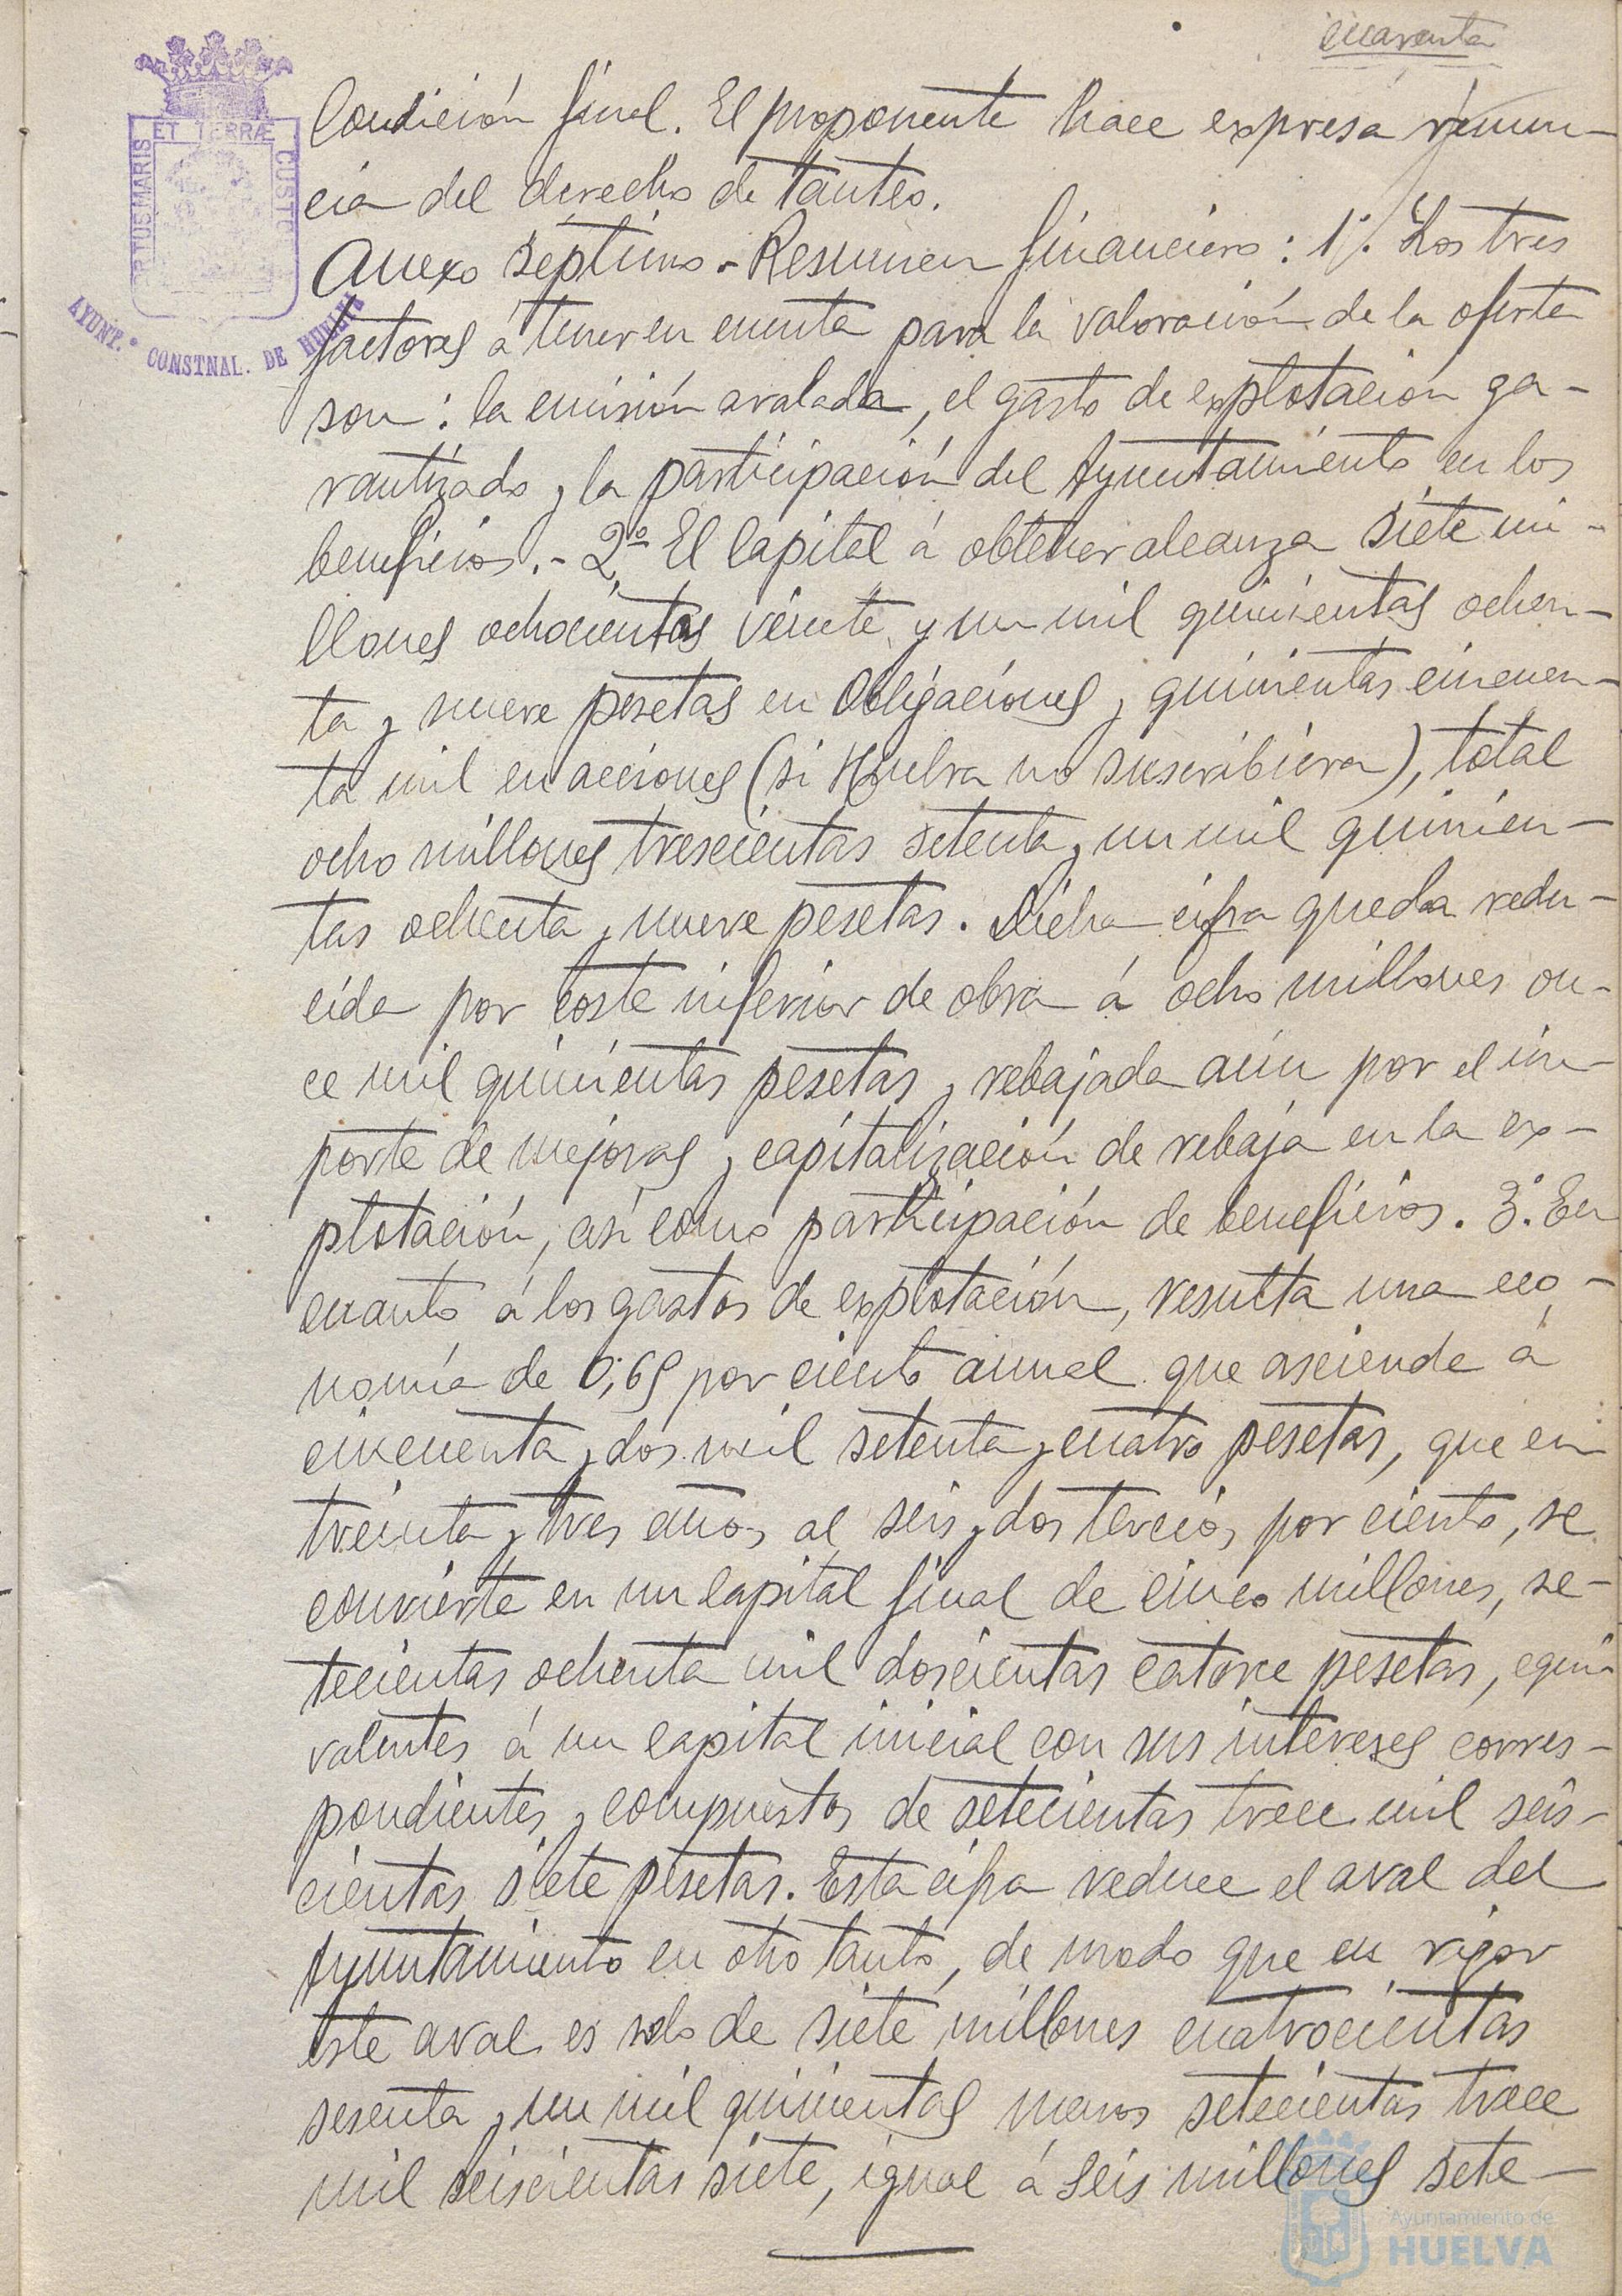 cuarenta
ET TERRÆ
PORTUS MARIS
CUSTO
AYUNT.º CONSTNAL. DE HUELVA
Condición final. El proponente hace expresa renun-
cia del derecho de tanteo.
Anexo séptimo.- Resumen financiero: 1º. Los tres
factores á tener en cuenta para la valoración de la oferta
son: la emisión avalada, el gasto de explotación ga-
rantizado y la participación del Ayuntamiento en los
beneficios.- 2º El Capital á obtener alcanza siete mi-
llones ochocientas veinte y un mil quinientas ochen-
ta y nueve pesetas en Obligaciones y quinientas cincuen-
ta mil en acciones (si Huelva no suscribiera), total
ocho millones trescientas setenta y un mil quinien-
tas ochenta y nueve pesetas. Dicha cifra queda redu-
cida por coste inferior de obra á ocho millones on-
ce mil quinientas pesetas y rebajada aún por el im-
porte de mejoras y capitalización de rebaja en la ex-
plotación, así como participación de beneficios. 3º. En
cuanto á los gastos de explotación, resulta una eco-
nomía de 0,69 por ciento anual que asciende á
cincuenta y dos mil setenta y cuatro pesetas, que en
treinta y tres años al seis y dos tercios por ciento, se
convierte en un capital final de cinco millones, se-
tecientas ochenta mil doscientas catorce pesetas, equi-
valentes á un capital inicial con sus intereses corres-
pondientes y compuestos de setecientas trece mil seis-
cientas siete pesetas. Esta cifra reduce el aval del
Ayuntamiento en otro tanto, de modo que en rigor
este aval es solo de siete millones cuatrocientas
sesenta y un mil quinientas menos setecientas trece
mil seiscientas siete, igual á seis millones sete-
Ayuntamiento de
HUELVA